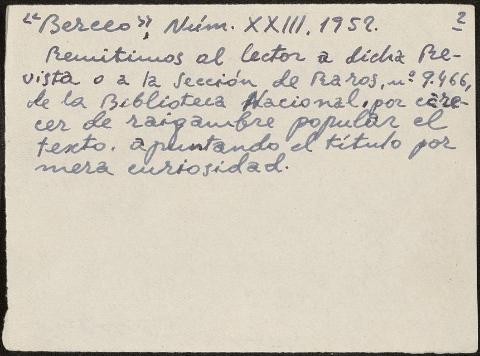 2
"Berceo", Núm. XXIII, 1952.
Remitimos al lector a dicha Re-
vista o a la sección de Raros, nº 9.466,
de la Biblioteca Nacional, por care-
cer de raigambre popular el
texto. apuntando el título por
mera curiosidad.